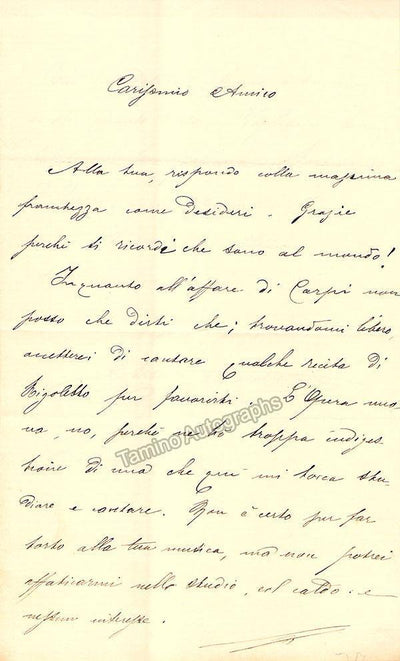 Carissimo Amico
Alla tua, rispondo colla massima
prontezza come desideri. Grazie
perchè ti ricordi che sono al mondo!
Inquanto all'affare di Carpi non
posso che dirti che; trovandomi libero,
accetterei di cantare qualche recita di
Rigoletto per favorirti. L'Opera nuo
va, no, perchè ne ho troppa indiges
tione di una che qui mi tocca stu
diare e cantare. Non è certo per far
torto alla tua musica, ma non potrei
affaticarmi nello studio, col caldo e
nessun interesse.
Tamino Autographs